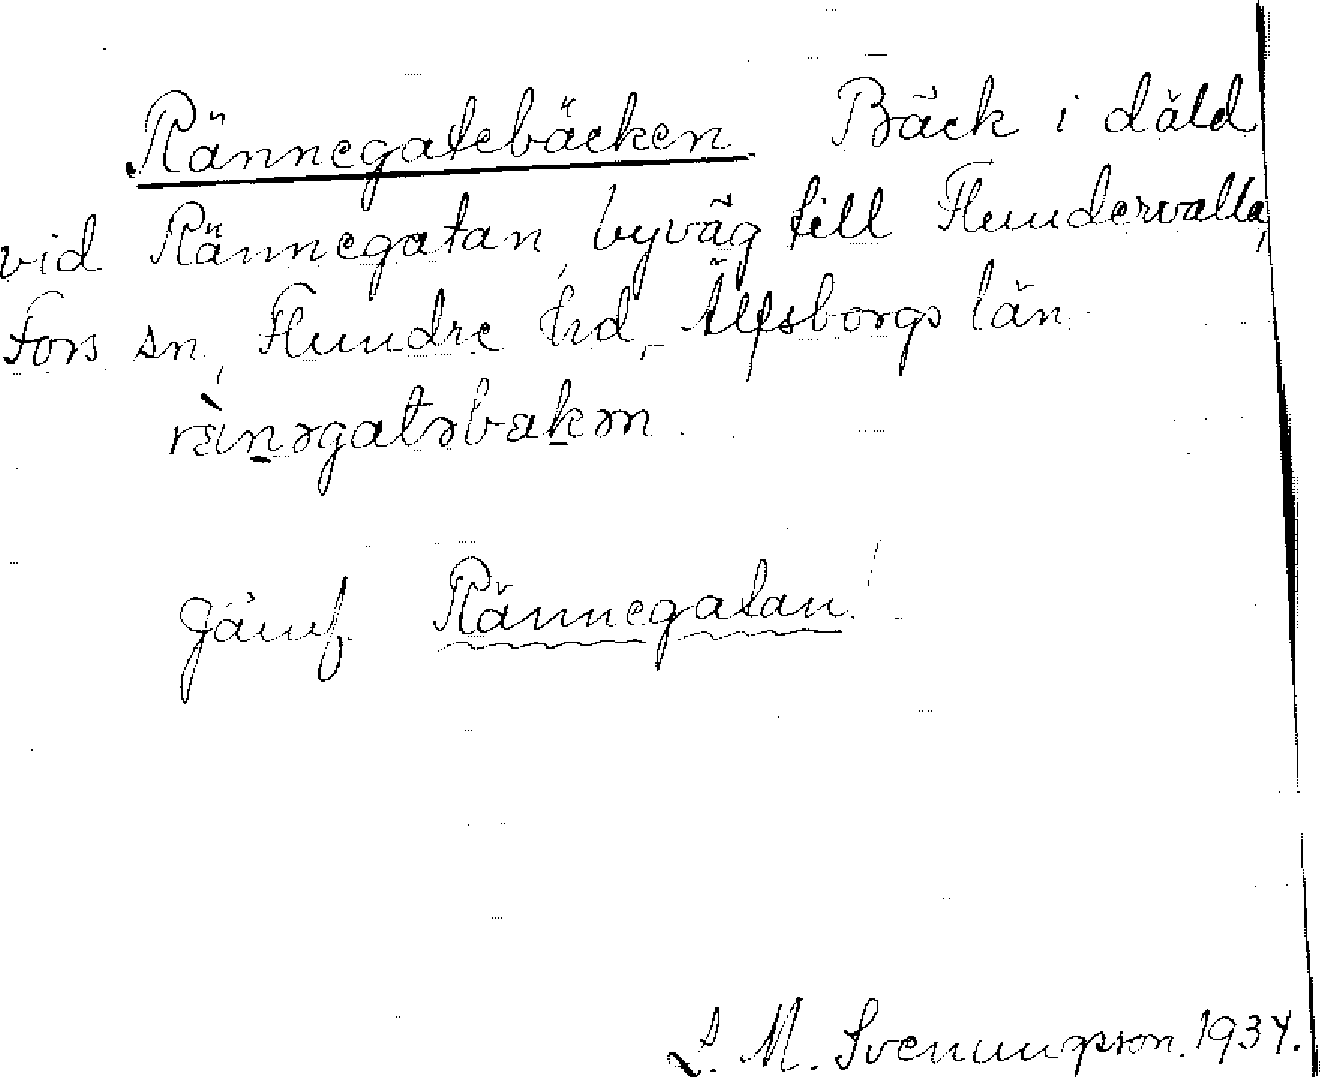 Rännegatebäcken. Bäck i däld
vid Rännegatan, byväg till Flundervalla,
Fors sn, Flundre hd, Älfsborgs län.
Jämf. Rännegatan!
L. M. Svenungsson. 1934.